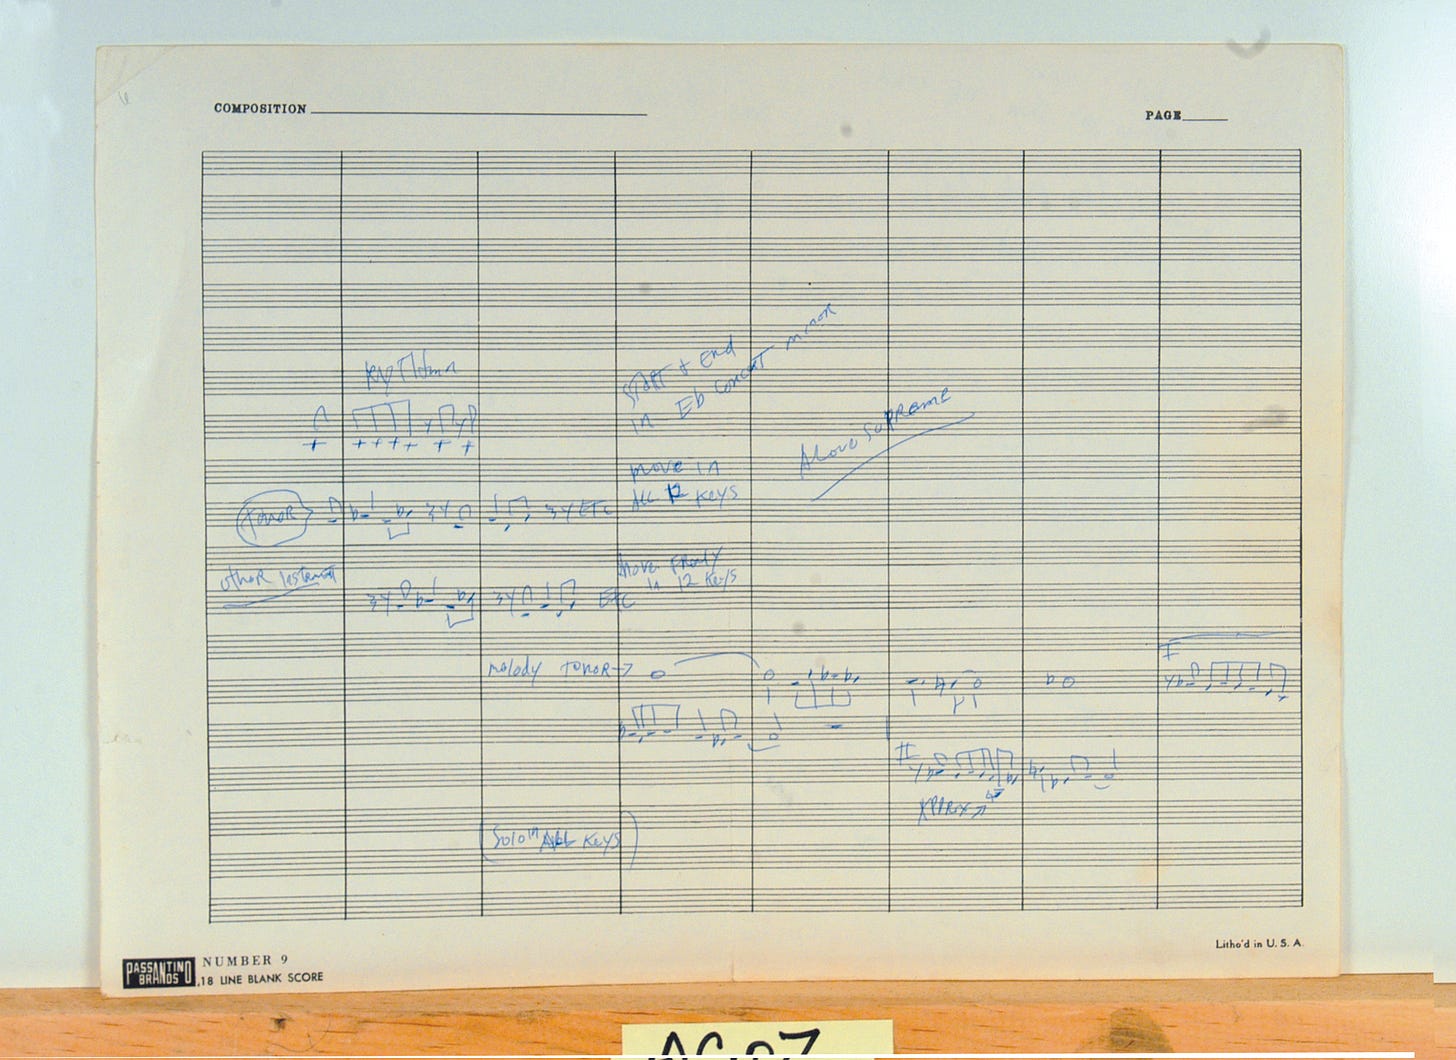 COMPOSITION
PAGE
START + End
in Eb Concert minor
A Love Supreme
move in
ALL 12 Keys
TenoR
ETC
move Freely
in 12 Keys
other
ETC
melody TenoR →
I
II
(Solo in ALL Keys)
PASSANTINO
BRANDS
NUMBER 9
18 LINE BLANK SCORE
Litho'd in U. S. A.